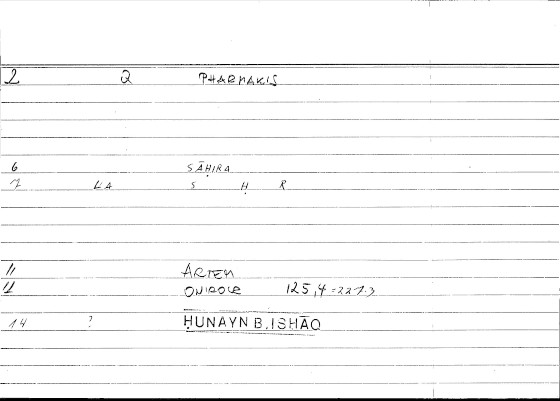 2 Q PHARMAKIS
6 SĀḤIRA
7 LA S Ḥ R
11 ARTEM
12 ONIROCR 125,4 = 227.3
14 ? ḤUNAYN B. ISHĀQ